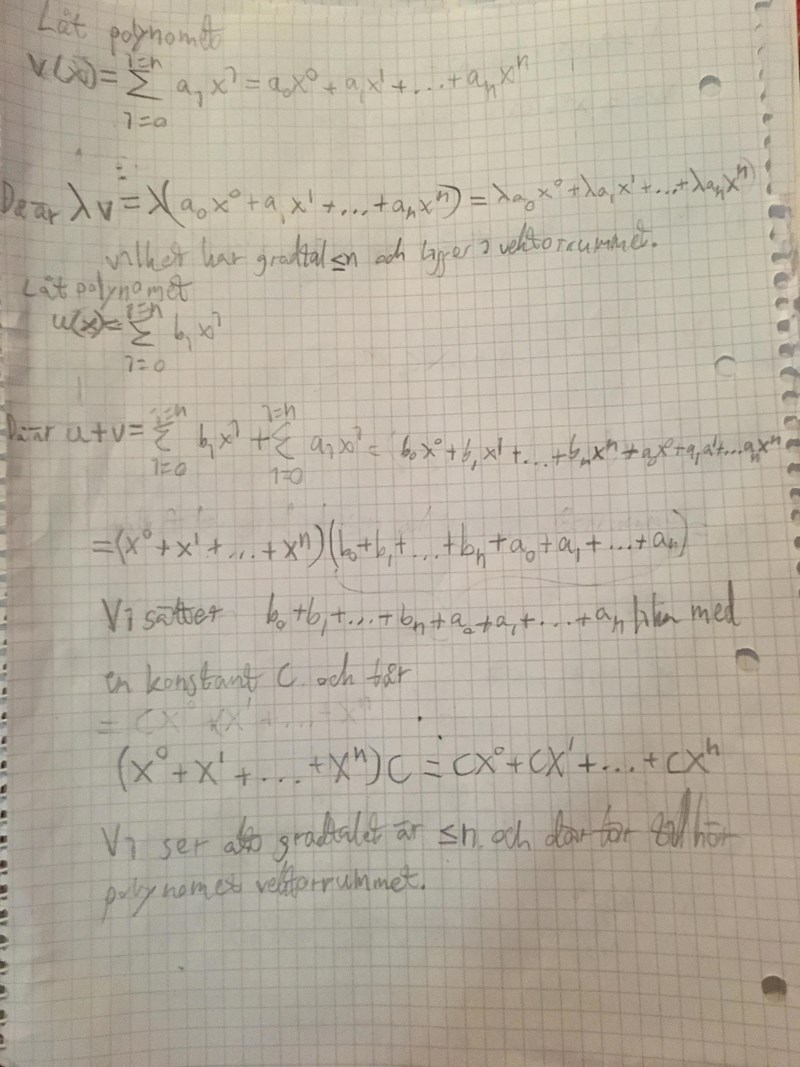 Låt polynomet
v(x) = ∑_{i=0}^{i=n} a_i x^i = a_0x^0 + a_1x^1 + ... + a_nx^n
Då är λv = λ(a_0x^0 + a_1x^1 + ... + a_nx^n) = λa_0x^0 + λa_1x^1 + ... + λa_nx^n
vilket har gradtal ≤n och ligger i vektorrummet.
Låt polynomet
u(x) = ∑_{i=0}^{i=n} b_i x^i
Då är u+v = ∑_{i=0}^{i=n} b_i x^i + ∑_{i=0}^{i=n} a_i x^i = b_0x^0 + b_1x^1 + ... + b_nx^n + a_0x^0 + a_1x^1 + ... a_nx^n
= (x^0 + x^1 + ... + x^n)(b_0 + b_1 + ... + b_n + a_0 + a_1 + ... + a_n)
Vi sätter b_0 + b_1 + ... + b_n + a_0 + a_1 + ... + a_n lika med
en konstant C och får
(x^0 + x^1 + ... + x^n)C = Cx^0 + Cx^1 + ... + Cx^n
Vi ser att gradtalet är ≤n och därför tillhör
polynomet vektorrummet.